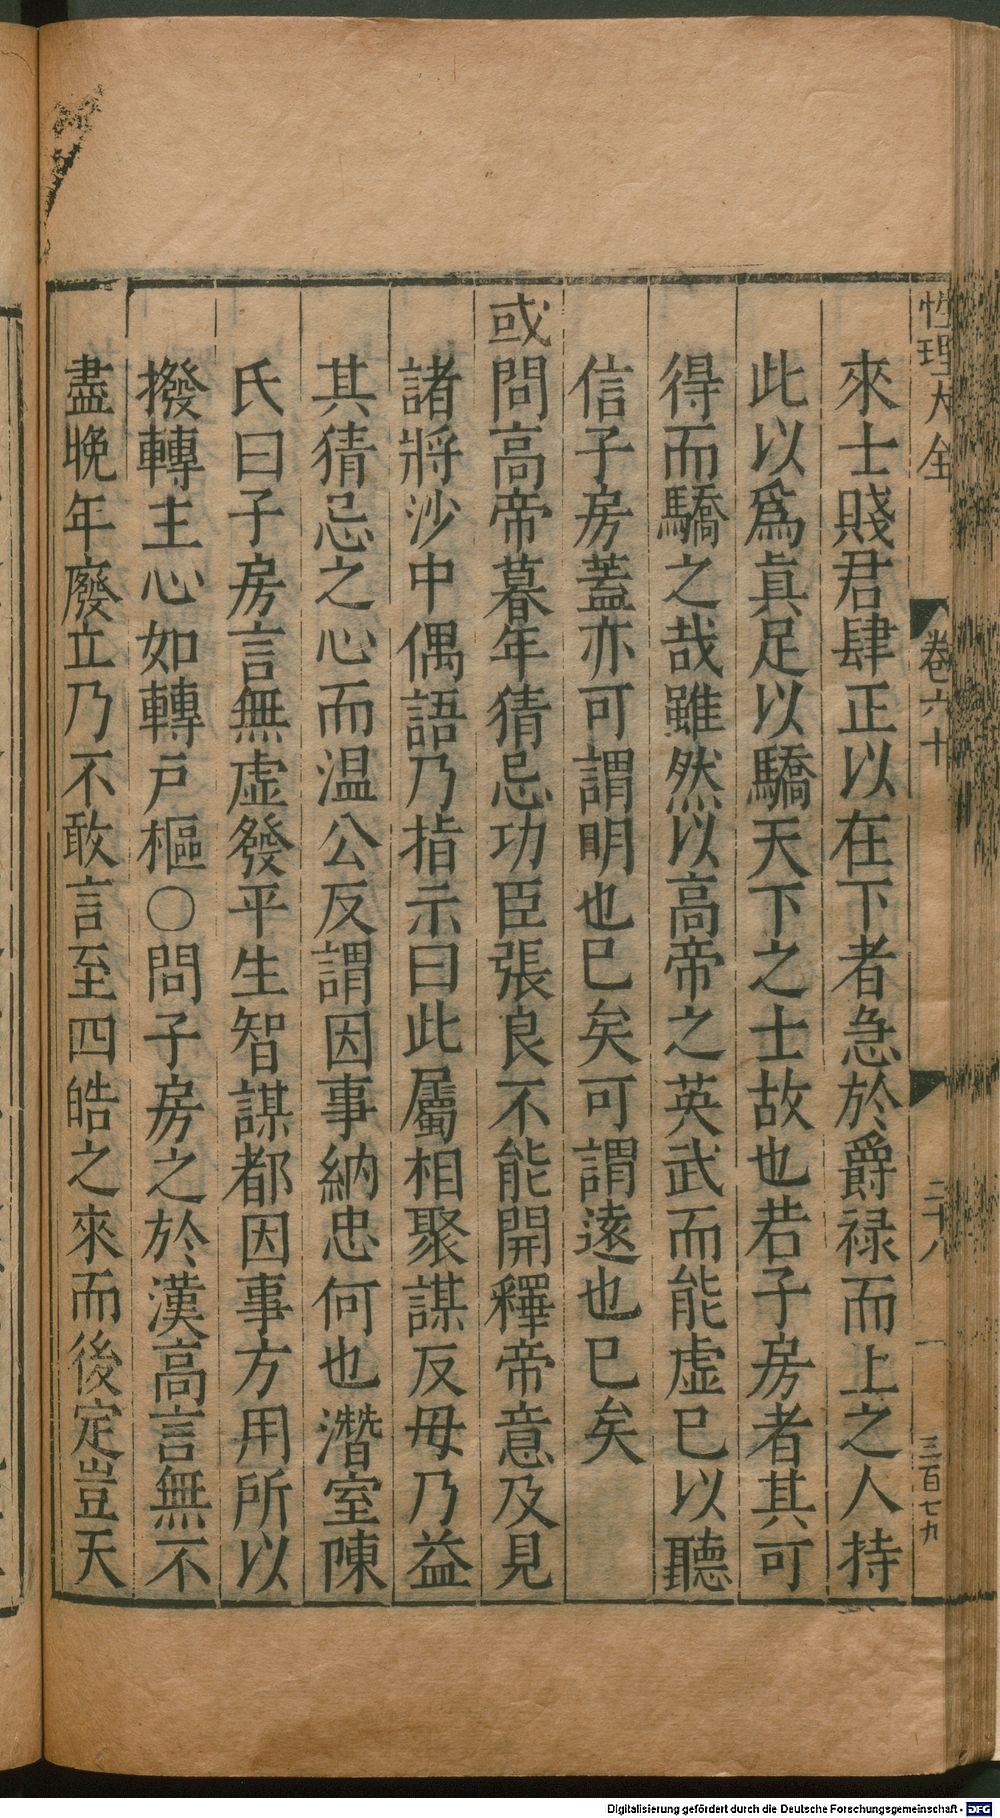 性理大全 卷六十 二十八 三百七九
來士賤君肆正以在下者急於爵禄而上之人持
此以爲眞足以驕天下之士故也若子房者其可
得而驕之哉雖然以高帝之英武而能虚已以聽
信子房蓋亦可謂明也已矣可謂遠也已矣
或問高帝暮年猜忌功臣張良不能開釋帝意及見
諸將沙中偶語乃指示曰此屬相聚謀反毋乃益
其猜忌之心而温公反謂因事納忠何也潛室陳
氏曰子房言無虚發平生智謀都因事方用所以
撥轉主心如轉戸樞○問子房之於漢高言無不
盡晚年廢立乃不敢言至四皓之來而後定豈天
Digitalisierung gefördert durch die Deutsche Forschungsgemeinschaft - DFG